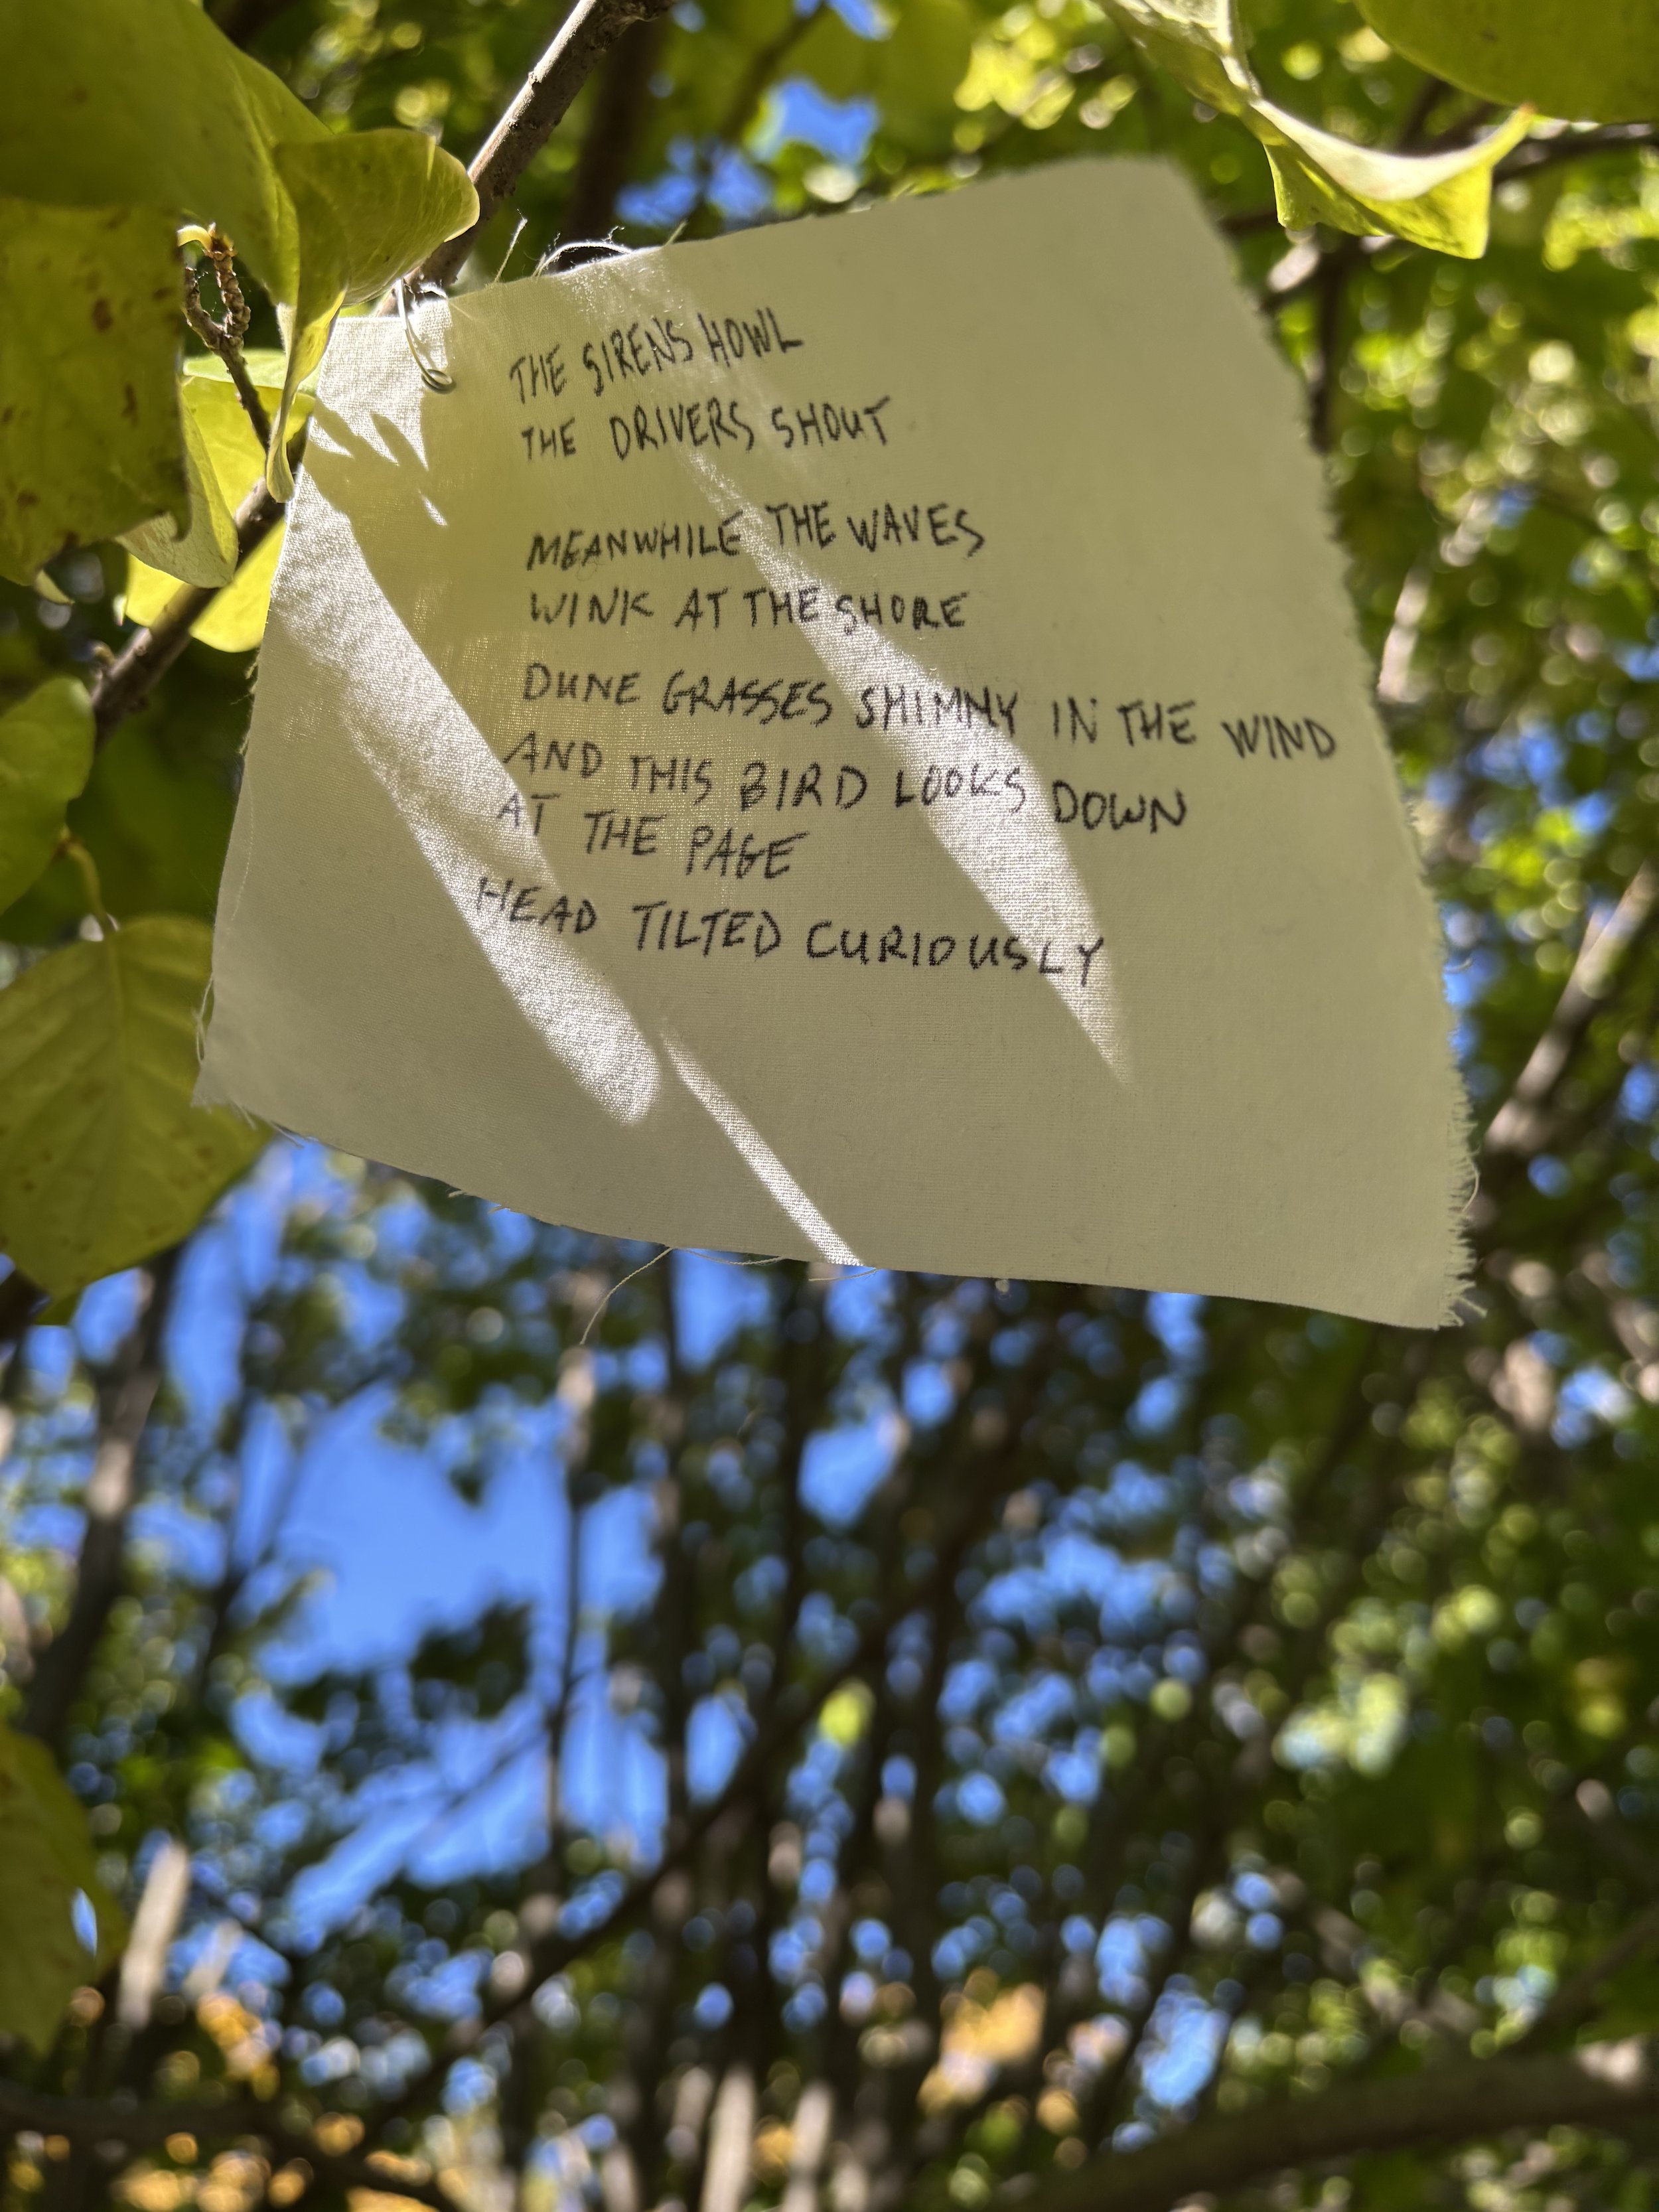 THE SIRENS HOWL
THE DRIVERS SHOUT
MEANWHILE THE WAVES
WINK AT THE SHORE
DUNE GRASSES SHIMMY IN THE WIND
AND THIS BIRD LOOKS DOWN
AT THE PAGE
HEAD TILTED CURIOUSLY